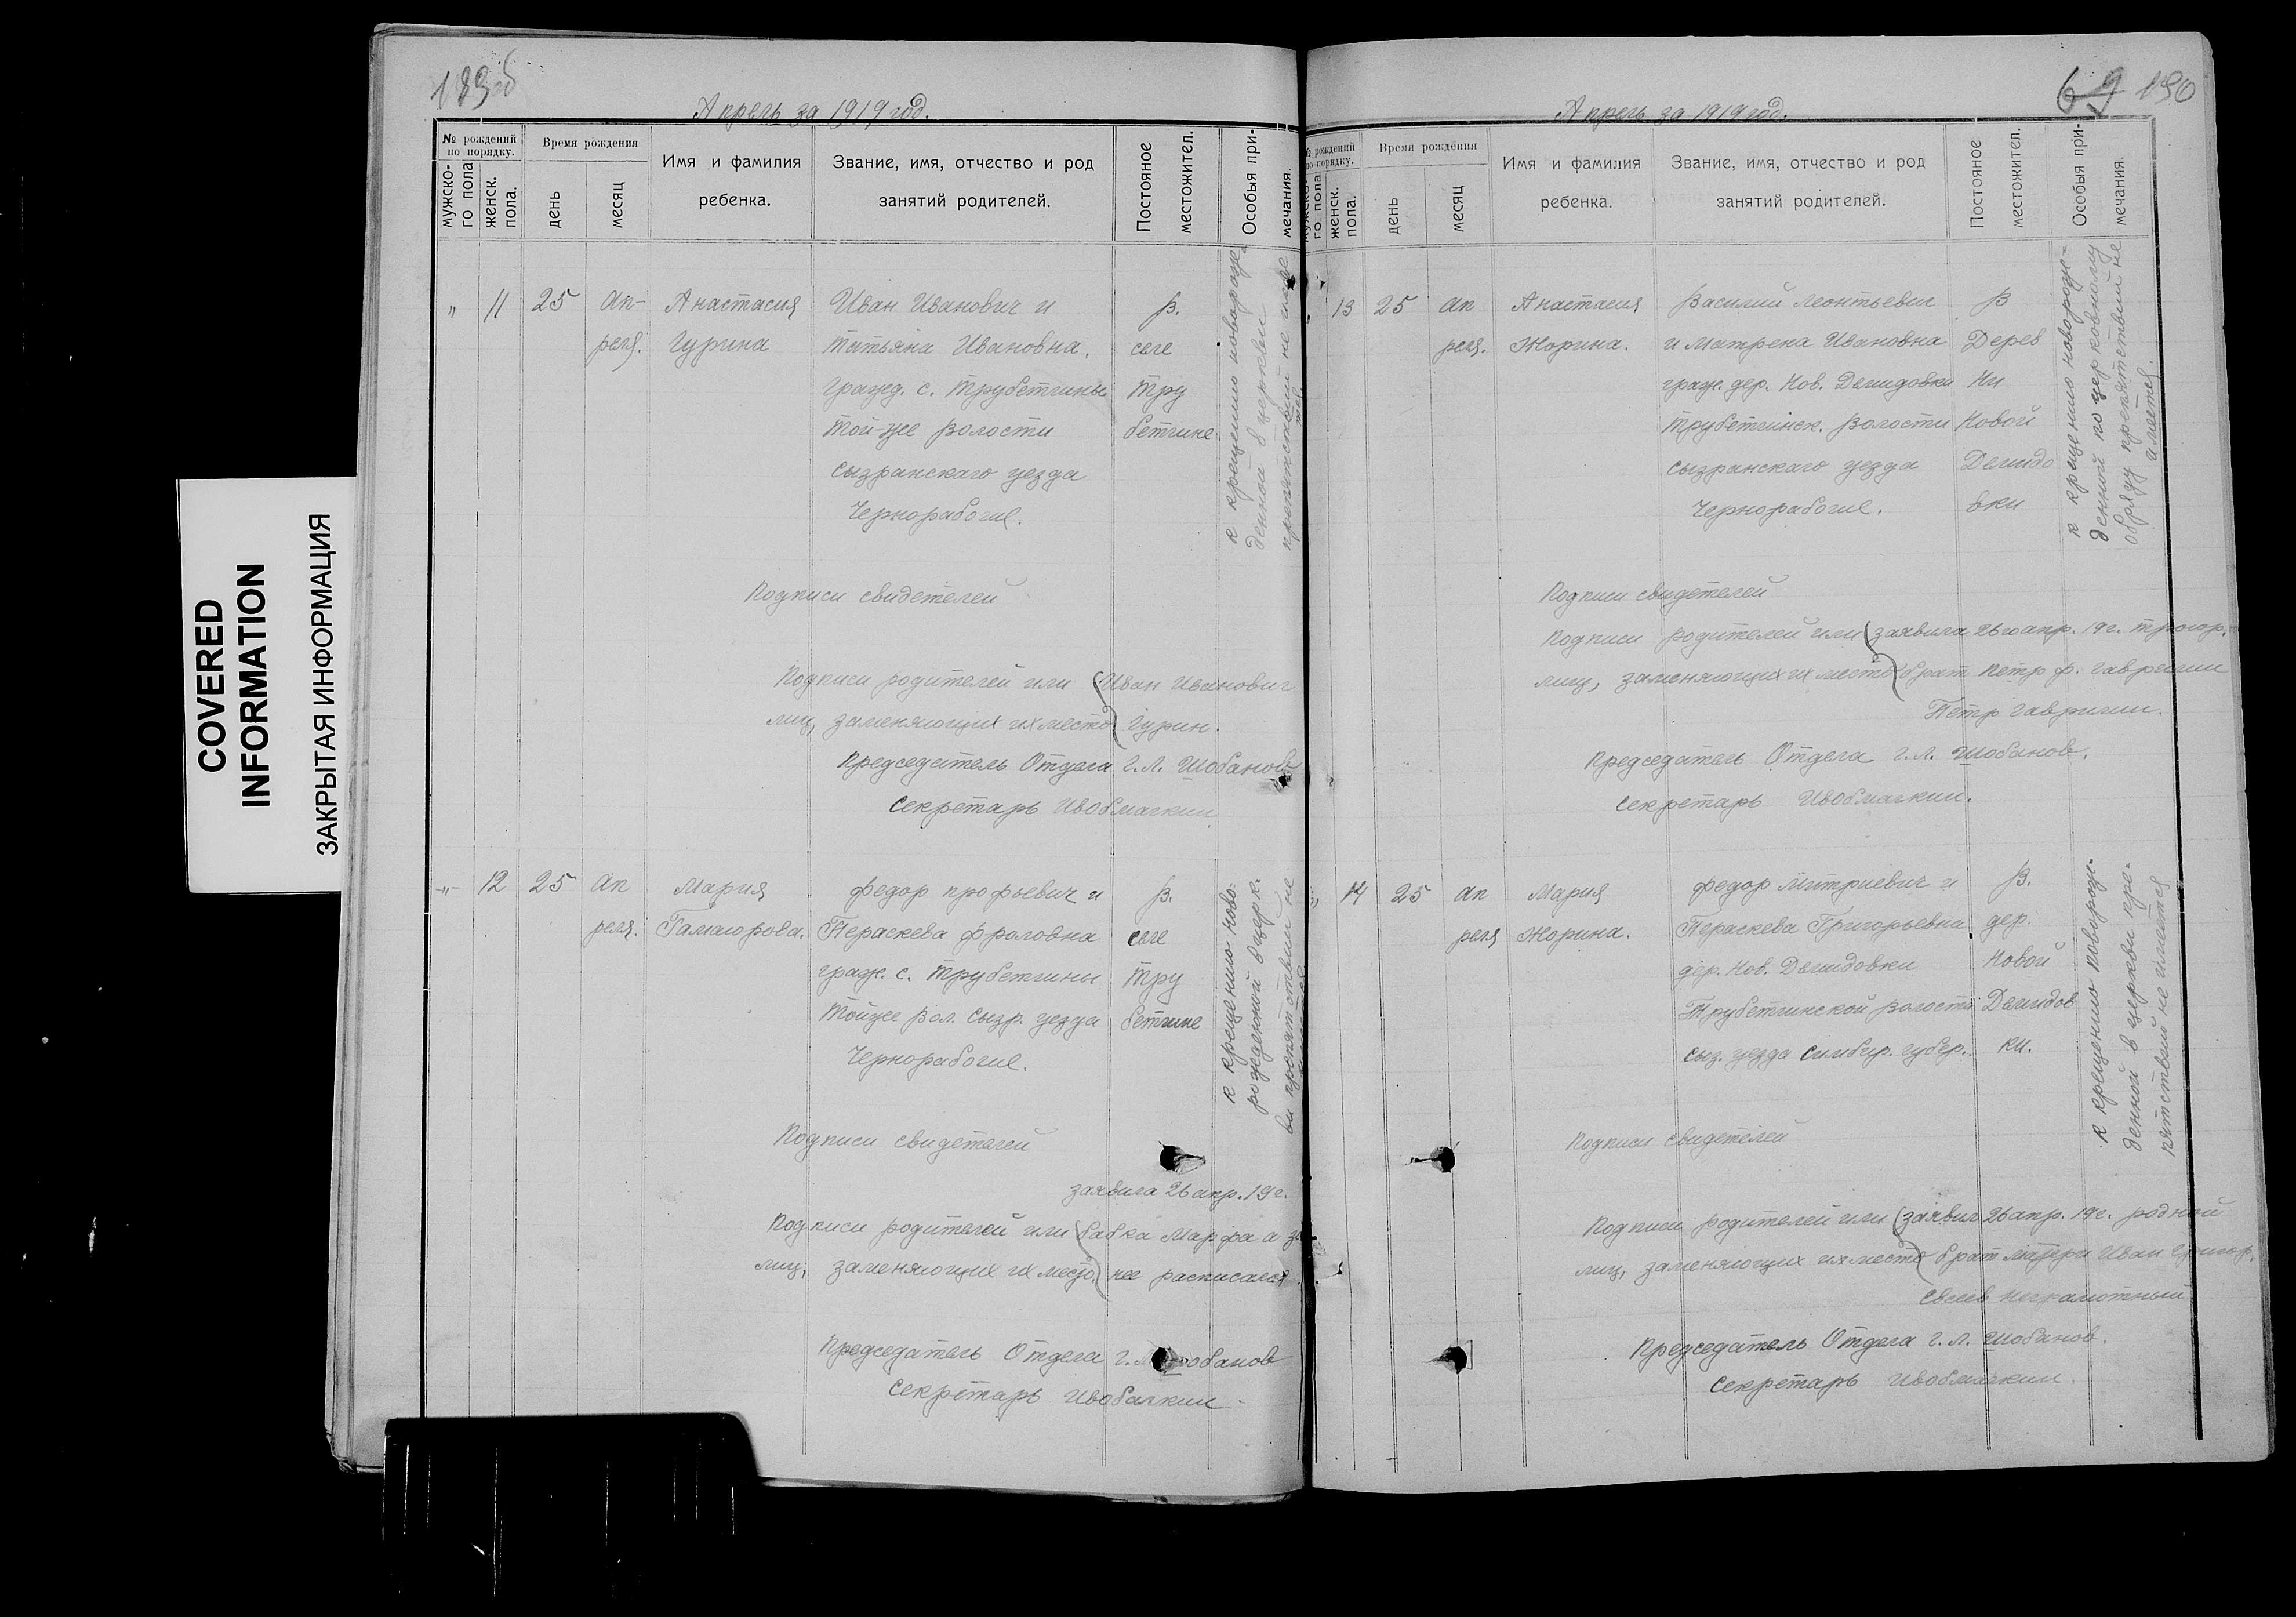 COVERED
INFORMATION
ЗАКРЫТАЯ ИНФОРМАЦИЯ
Апрель за 1919 год.
№ рождений по порядку.
мужско-го пола
женск. пола.
Время рождения
день
месяц
Имя и фамилия
ребенка.
Звание, имя, отчество и род
занятий родителей.
Постояное
местожител.
Особыя при-
мечания.
" 11 25 Ап- Анастасия Иван Иванович и В.
реля. Гурина Татьяна Ивановна, селе
гражд. с. Трубетчины Тру
той-же волости бетчине
Сызранскаго уезда
Чернорабочие.
к крещению новорож-
денной в церкви
препятствий не имее
тся
Подписи свидетелей
Подписи родителей или Иван Иванович
лиц, заменяющих их место Гурин.
Председатель Отдела Г. Л. Шобанов
Секретарь
-"- 12 25 Ап Мария Федор Профьевич и В.
реля. Параскева Фроловна селе
граж. с. Трубетчины Тру
тойже вол. Сызр. уезда бетчине
Чернорабочие.
к крещению ново-
рожденной в церк-
ви препятствий не
Подписи свидетелей
заявила 26 апр. 19 г.
Подписи родителей или бабка Марфа а з
лиц, заменяющих их место нее расписался
Председатель Отдела Г. Шобанов
Секретарь
69 190
Апрель за 1919 год.
№ рождений по порядку.
мужско-го пола
женск. пола.
Время рождения
день
месяц
Имя и фамилия
ребенка.
Звание, имя, отчество и род
занятий родителей.
Постояное
местожител.
Особыя при-
мечания.
" 13 25 Ап Анастасия Василий Леонтьевич В
реля. Жорина. и Матрена Ивановна Дерев
граж. дер. Нов. Демидовки ни
Трубетчинск. волости Новой
Сызранскаго уезда Демидо
Чернорабочие. вки
к крещению новорож-
денной по церковному
обряду препятствий не
имеется.
Подписи свидетелей
Подписи родителей или заявила 26го апр. 19 г.
лиц, заменяющих их место брат Петр Ф. Гаврилин
Петр Гаврилин.
Председатель Отдела Г. Л. Шобанов.
Секретарь
" 14 25 Ап Мария Федор Митриевич и В.
реля Жорина. Параскева Григорьевна дер.
дер. Нов. Демидовки Новой
Трубетчинской волости Демидов
сыз. уезда Симбир. губер. ки.
к крещению новорож-
денной в церкви пре-
пятствий не имеется
Подписи свидетелей
Подписи родителей или заявил 26 апр. 19 г. родной
лиц, заменяющих их место брат матери Иван Григор.
неграмотный
Председатель Отдела Г. Л. Шобанов.
Секретарь